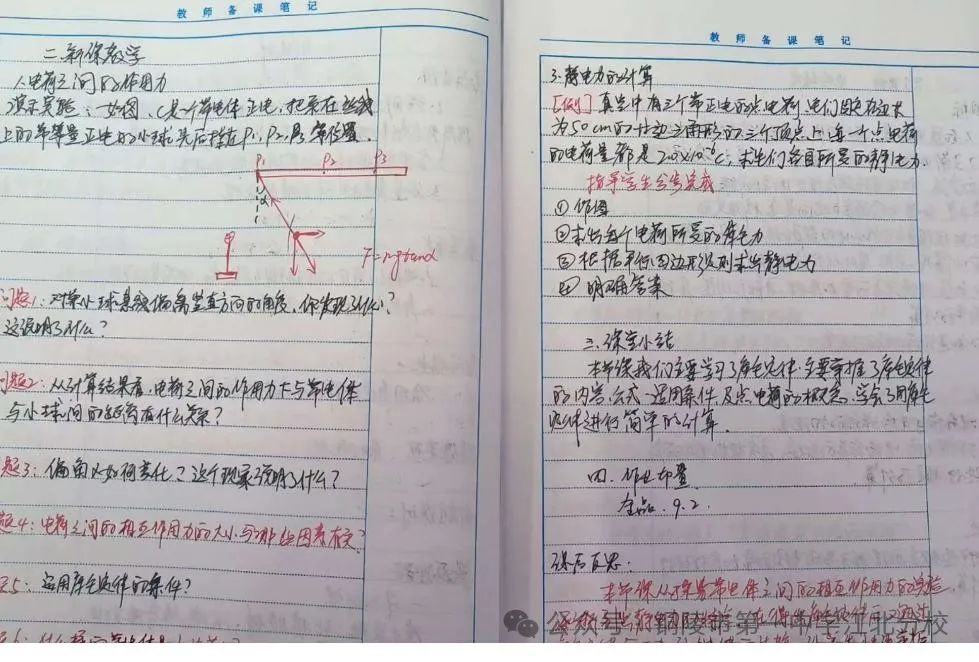 教师备课笔记
二.新课教学
1.电荷之间的作用力
演示实验：如图，C是一个带电体正电，把系在丝线
上的带等量正电的小球先后挂在P1、P2、P3等位置.
P1 P2 P3
α
F=mgtanα
问题1：对策小球悬线偏离竖直方向的角度，你发现了什么？
这说明了什么？
问题2：从计算结果看，电荷之间的作用力大小与带电体
与小球间的距离有什么关系？
题3：偏角又如何变化？这个现象说明了什么？
题4：电荷之间的相互作用力的大小与哪些因素有关？
题5：适用库仑定律的条件？
教师备课笔记
3.静电力的计算
[例] 真空中有三个带正电的点电荷，它们固定在边长
为50cm的等边三角形的三个顶点上，每一个点电荷
的电荷量都是2.0×10⁻⁶C，求它们各自所受的静电力
指导学生合作完成
① 作图
② 求出每个电荷所受的库仑力
③ 根据平行四边形法则求出静电力
④ 明确答案
三.课堂小结
本节课我们主要学习了库仑定律，主要掌握了库仑定律
的内容、公式、适用条件及点电荷的概念，学会了用库仑
定律进行简单的计算.
四.作业布置
金品.9.2.
课后反思：
本节课从探究带电体之间的相互作用力的实验
公众号·铜陵市第一中学江北分校